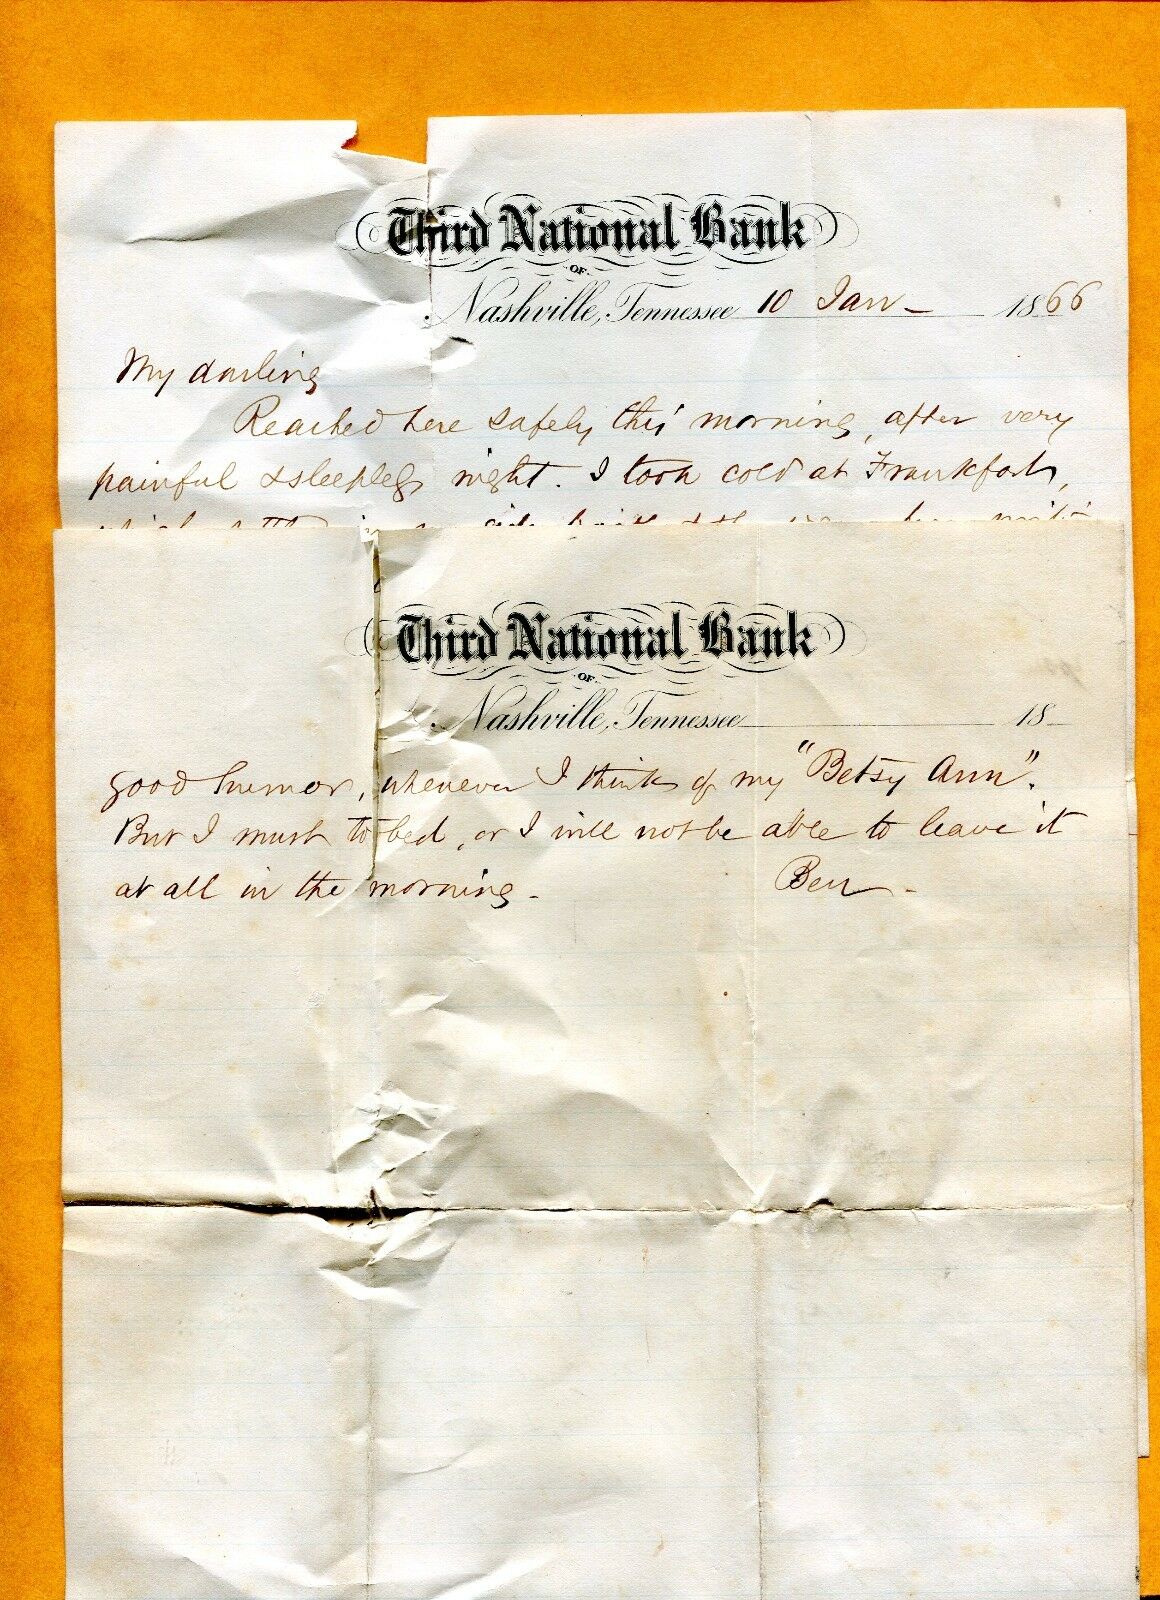 Third National Bank
OF
Nashville, Tennessee 10 Jan - 1866
My darling
Reached here safely this morning, after very
painful & sleepless night. I took cold at Frankfort,
in my side
Third National Bank
OF
Nashville, Tennessee 18
good humor, whenever I think of my "Betsy Ann".
But I must to bed, or I will not be able to leave it
at all in the morning -
Ben -